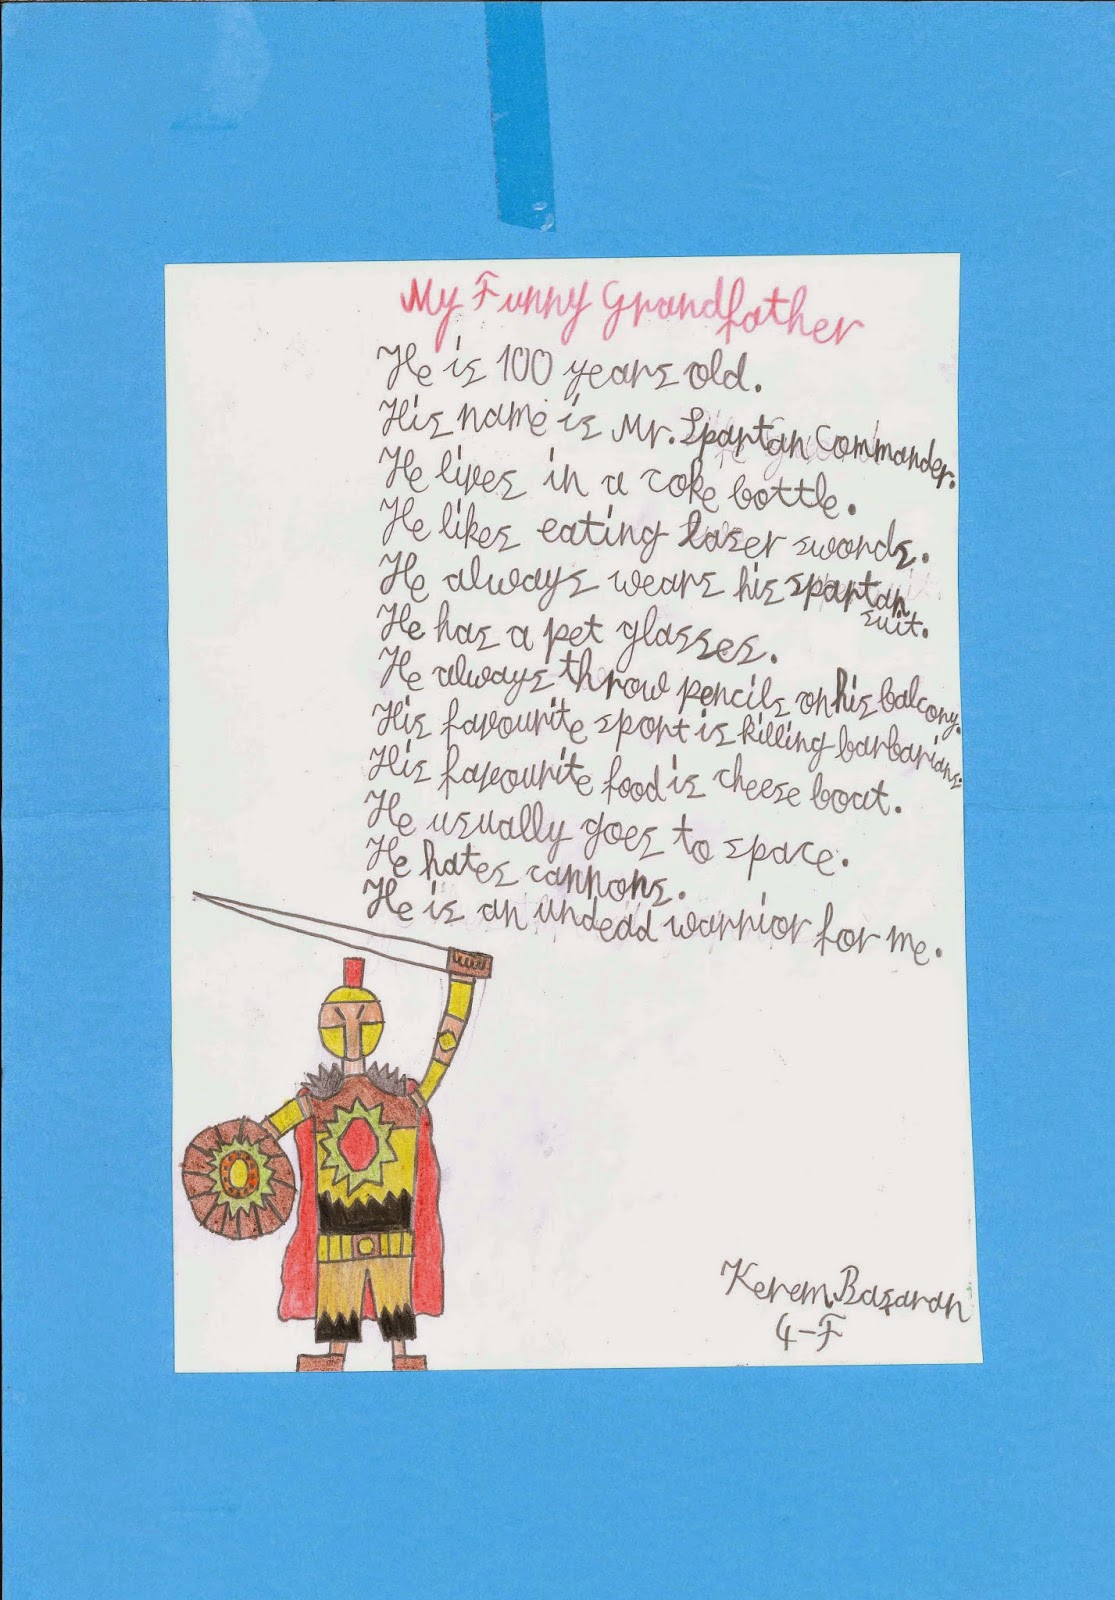 My Funny Grandfather
He is 100 years old.
His name is Mr. Spartan Commander.
He lives in a coke bottle.
He likes eating laser swords.
He always wears his spartan
suit.
He has a pet glasses.
He always throw pencils on his balcony.
His favourite sport is killing barbarians.
His favourite food is cheese boat.
He usually goes to space.
He hates cannons.
He is an undead warrior for me.
Kerem Başaran
4-F